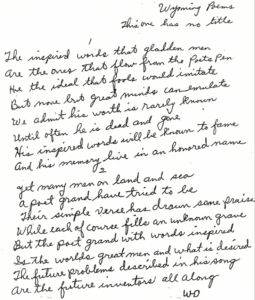 Wyoming Poems
This one has no title
1
The inspired words that gladden men
Are the ones that flow from the Poets Pen
the ideal that fools would imitate
But none but great minds can emulate
We admit his worth is rarely known
Until often he is dead and gone
His inspired words will be known to fame
And his memory live in an honored name
2
yet many men on land and sea
a post grand have tried to be
Their simple verse has drawn some praise
While each of course fills an unknown grave
But the post grand with words inspired
Is the worlds great men and what is desired
The future problems described in his song
Are the future inventors all along
WO